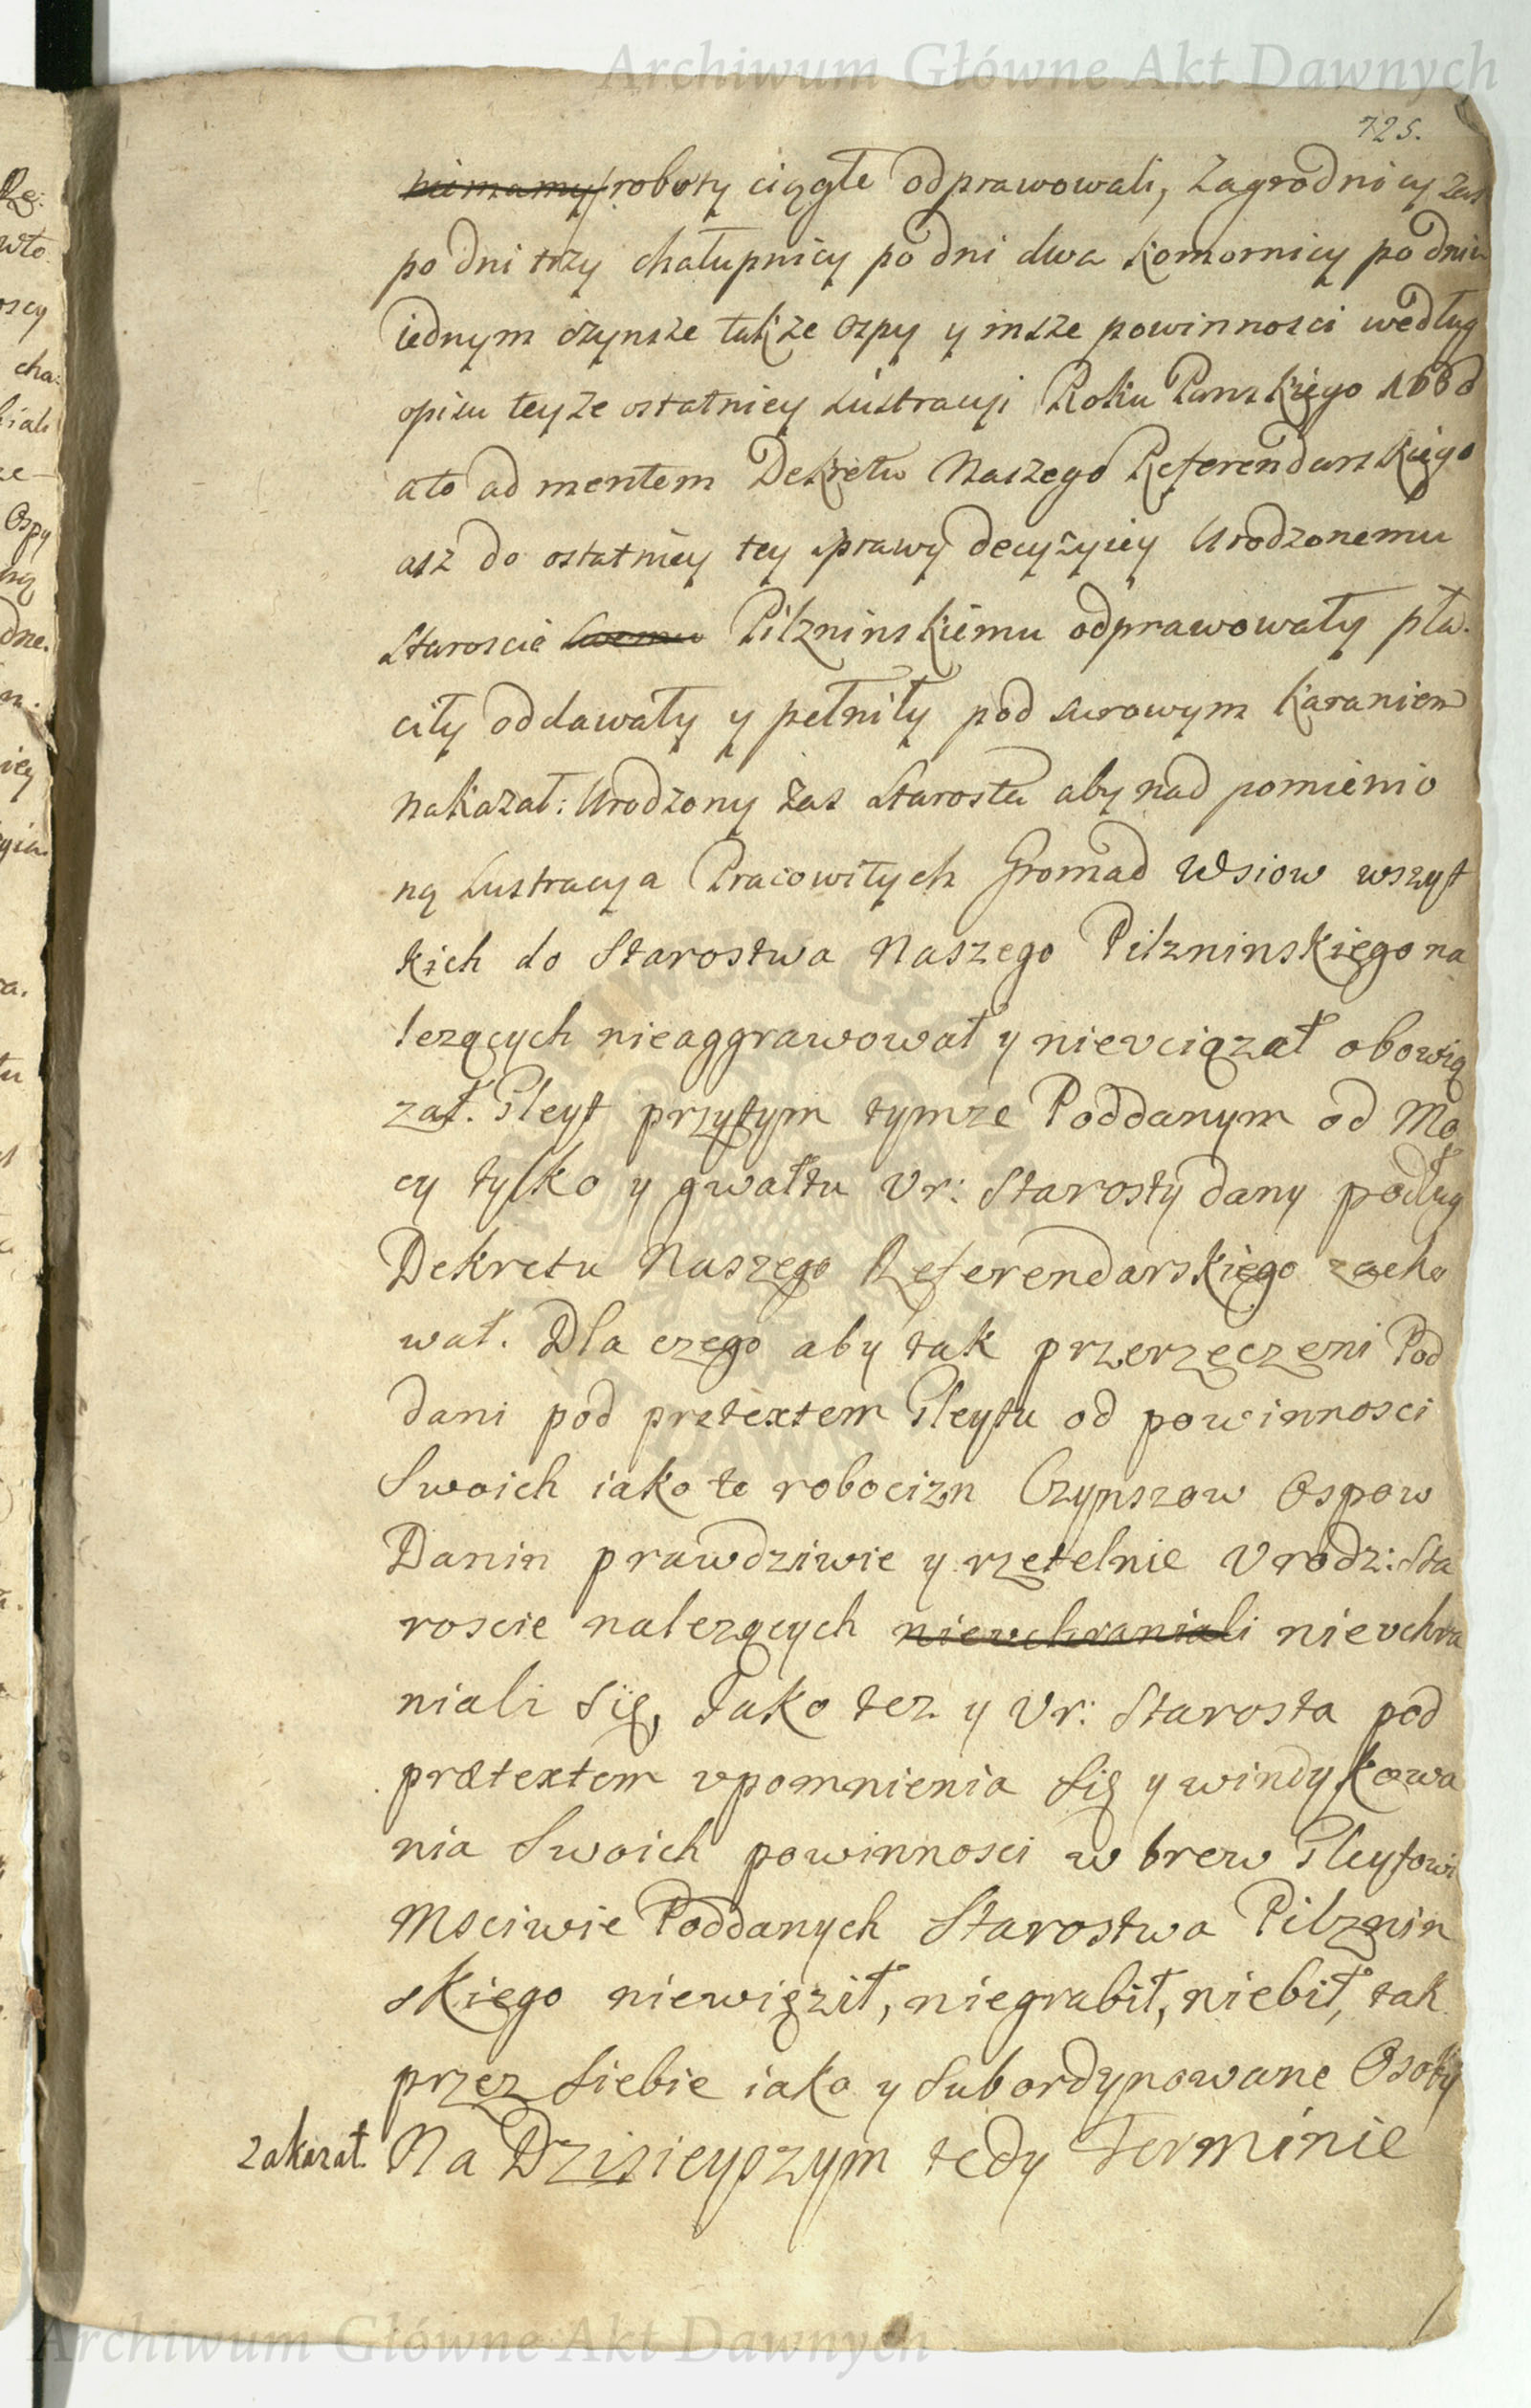 Archiwum Główne Akt Dawnych
725.
roboty ciągłe odprawowali, Zagrodnicy zas
po dni trzy chałupnicy po dni dwa Komornicy po dniu
iednym czynsze takze ospy y insze powinnosci według
opisu teyze ostatniey Lustracyi Roku Panskiego 1660
ato ad mentem Dekretu Naszego Referendarskiego
asz do ostatniey tey sprawy decyzyiey Urodzonemu
Staroscie Pilzninskiemu odprawowały pła.
ciły oddawały y pełniły pod surowym Karaniem
nakazał: Urodzony zas Starosta aby nad pomienio
ną Lustracyą Pracowitych Gromad Wsiow wszyt
kich do Starostwa Naszego Pilzninskiego na
lezących nieaggrawował y nieuciązał obowią
zał. Gleyt przytym tymze Poddanym od Mo
cy tylko y gwałtu Vr: Starosty dany podług
Dekretu Naszego Referendarskiego zacho
wał. Dla czego aby tak przerzeczeni Pod
dani pod prætextem Gleytu od powinnosci
Swoich iako to robocizn Czynszow Ospow
Danin prawdziwie y rzetelnie Vrodz: Sta
roscie nalezących nievchraniali nievchra
niali się, Jako tez y Vr: Starosta pod
prætextem vpomnienia się y windykowa
nia Swoich powinnosci w brew Gleytowi
Msciwie Poddanych Starostwa Pilznin
skiego niewięził, niegrabił, niebił, tak
przez siebie iako y Subordynowane Osoby
zakazał. Na Dzisieyszym tedy Terminie
Archiwum Główne Akt Dawnych